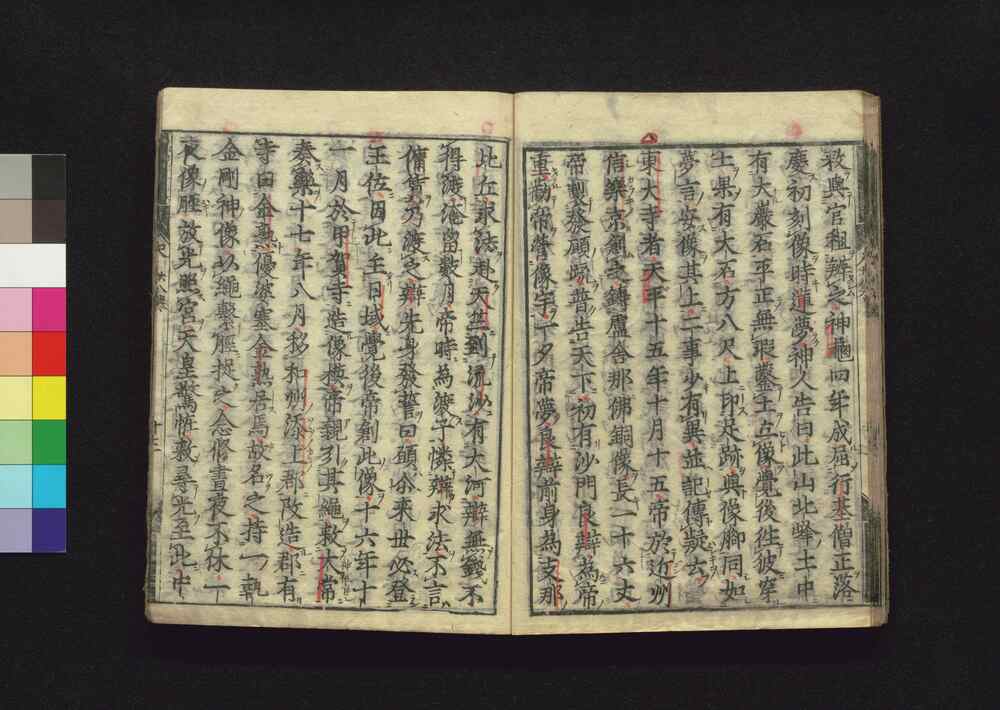 敕與官租辨之神龜四年成屈行基僧正落
慶初刻像時遺夢神人告曰此山北峰土中
有大巖石平正無瑕鑿土立像覺後往彼穿
土果有大石方八尺上印足跡與像脚同如
夢言安像其上二事少有異並記傳疑云
東大寺者天平十五年十月十五帝於近州
信樂京創之鑄盧舍那佛銅像長一十六丈
帝製發願疏普告天下初有沙門良辨為帝
重勅帝營像宇一夕帝夢良辨前身為支那
比丘求法赴天竺到流沙有大河辨無錢不
得渡淹留數月帝時為篙子憐辨求法不言
傭賃乃渡之辨先身發誓曰願公來世必登
王位因此王日域覺後帝創此像十六年十
一月於甲賀寺造像模帝親引其繩敕大常
奏樂十七年八月移和州添上郡改造郡有
寺曰金熟優婆塞金熟居焉故名之持一執
金剛神像以繩繫脛捉之念修晝夜不休一
夜像脛放光照宮天皇驚怪敕尋光至此中